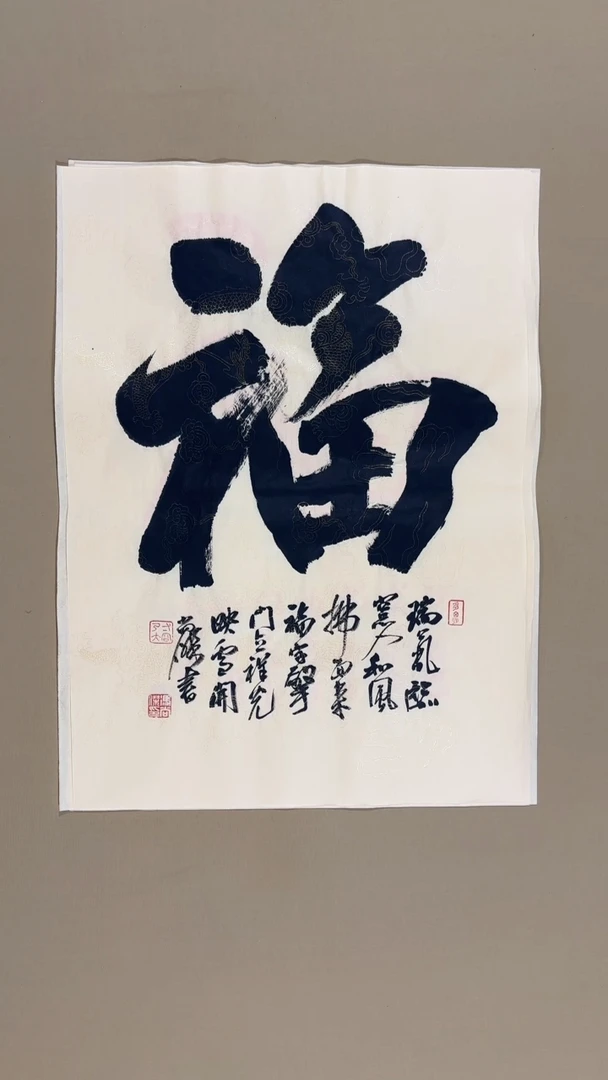 福
瑞氣臨
窗入和風
拂面來
福字擎
門立祥光
映雪開
書